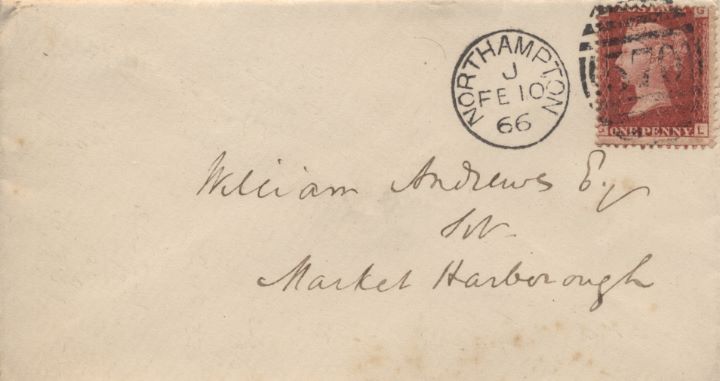 NORTHAMPTON
J
FE 10
66
570
G
ONE PENNY
L
William Andrews Esq
Market Harborough